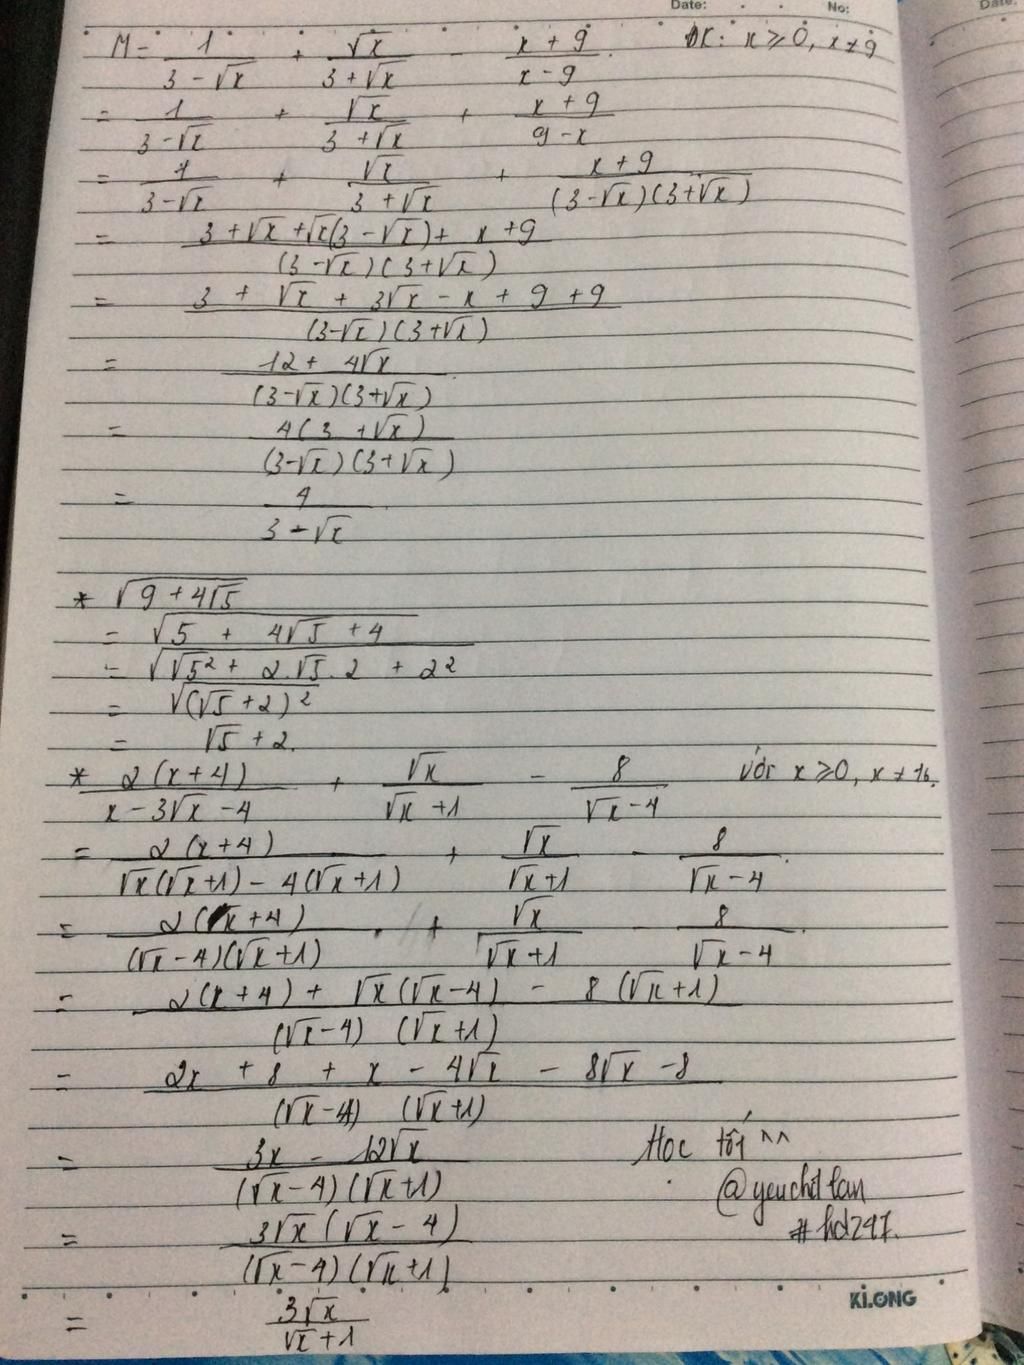 Date: No: Date.
M = 1/(3-√x) + √x/(3+√x) - (x+9)/(x-9). ĐK: x ≥ 0, x ≠ 9
= 1/(3-√x) + √x/(3+√x) + (x+9)/(9-x)
= 1/(3-√x) + √x/(3+√x) + (x+9)/((3-√x)(3+√x))
= (3+√x+√x(3-√x)+x+9)/((3-√x)(3+√x))
= (3+√x+3√x-x+9+9)/((3-√x)(3+√x))
= (12+4√x)/((3-√x)(3+√x))
= 4(3+√x)/((3-√x)(3+√x))
= 4/(3-√x)
* √(9+4√5)
= √(5+4√5+4)
= √(√5²+2.√5.2+2²)
= √((√5+2)²)
= √5+2.
* 2(x+4)/(x-3√x-4) + √x/(√x+1) - 8/(√x-4) Với x ≥ 0, x ≠ 16.
= 2(x+4)/(√x(√x+1)-4(√x+1)) + √x/(√x+1) - 8/(√x-4).
= 2(x+4)/((√x-4)(√x+1)) + √x/(√x+1) - 8/(√x-4).
= (2(x+4)+√x(√x-4)-8(√x+1))/((√x-4)(√x+1))
= (2x+8+x-4√x-8√x-8)/((√x-4)(√x+1))
= (3x-12√x)/((√x-4)(√x+1))
= 3√x(√x-4)/((√x-4)(√x+1))
= 3√x/(√x+1)
Học tốt ^^
KiLONG